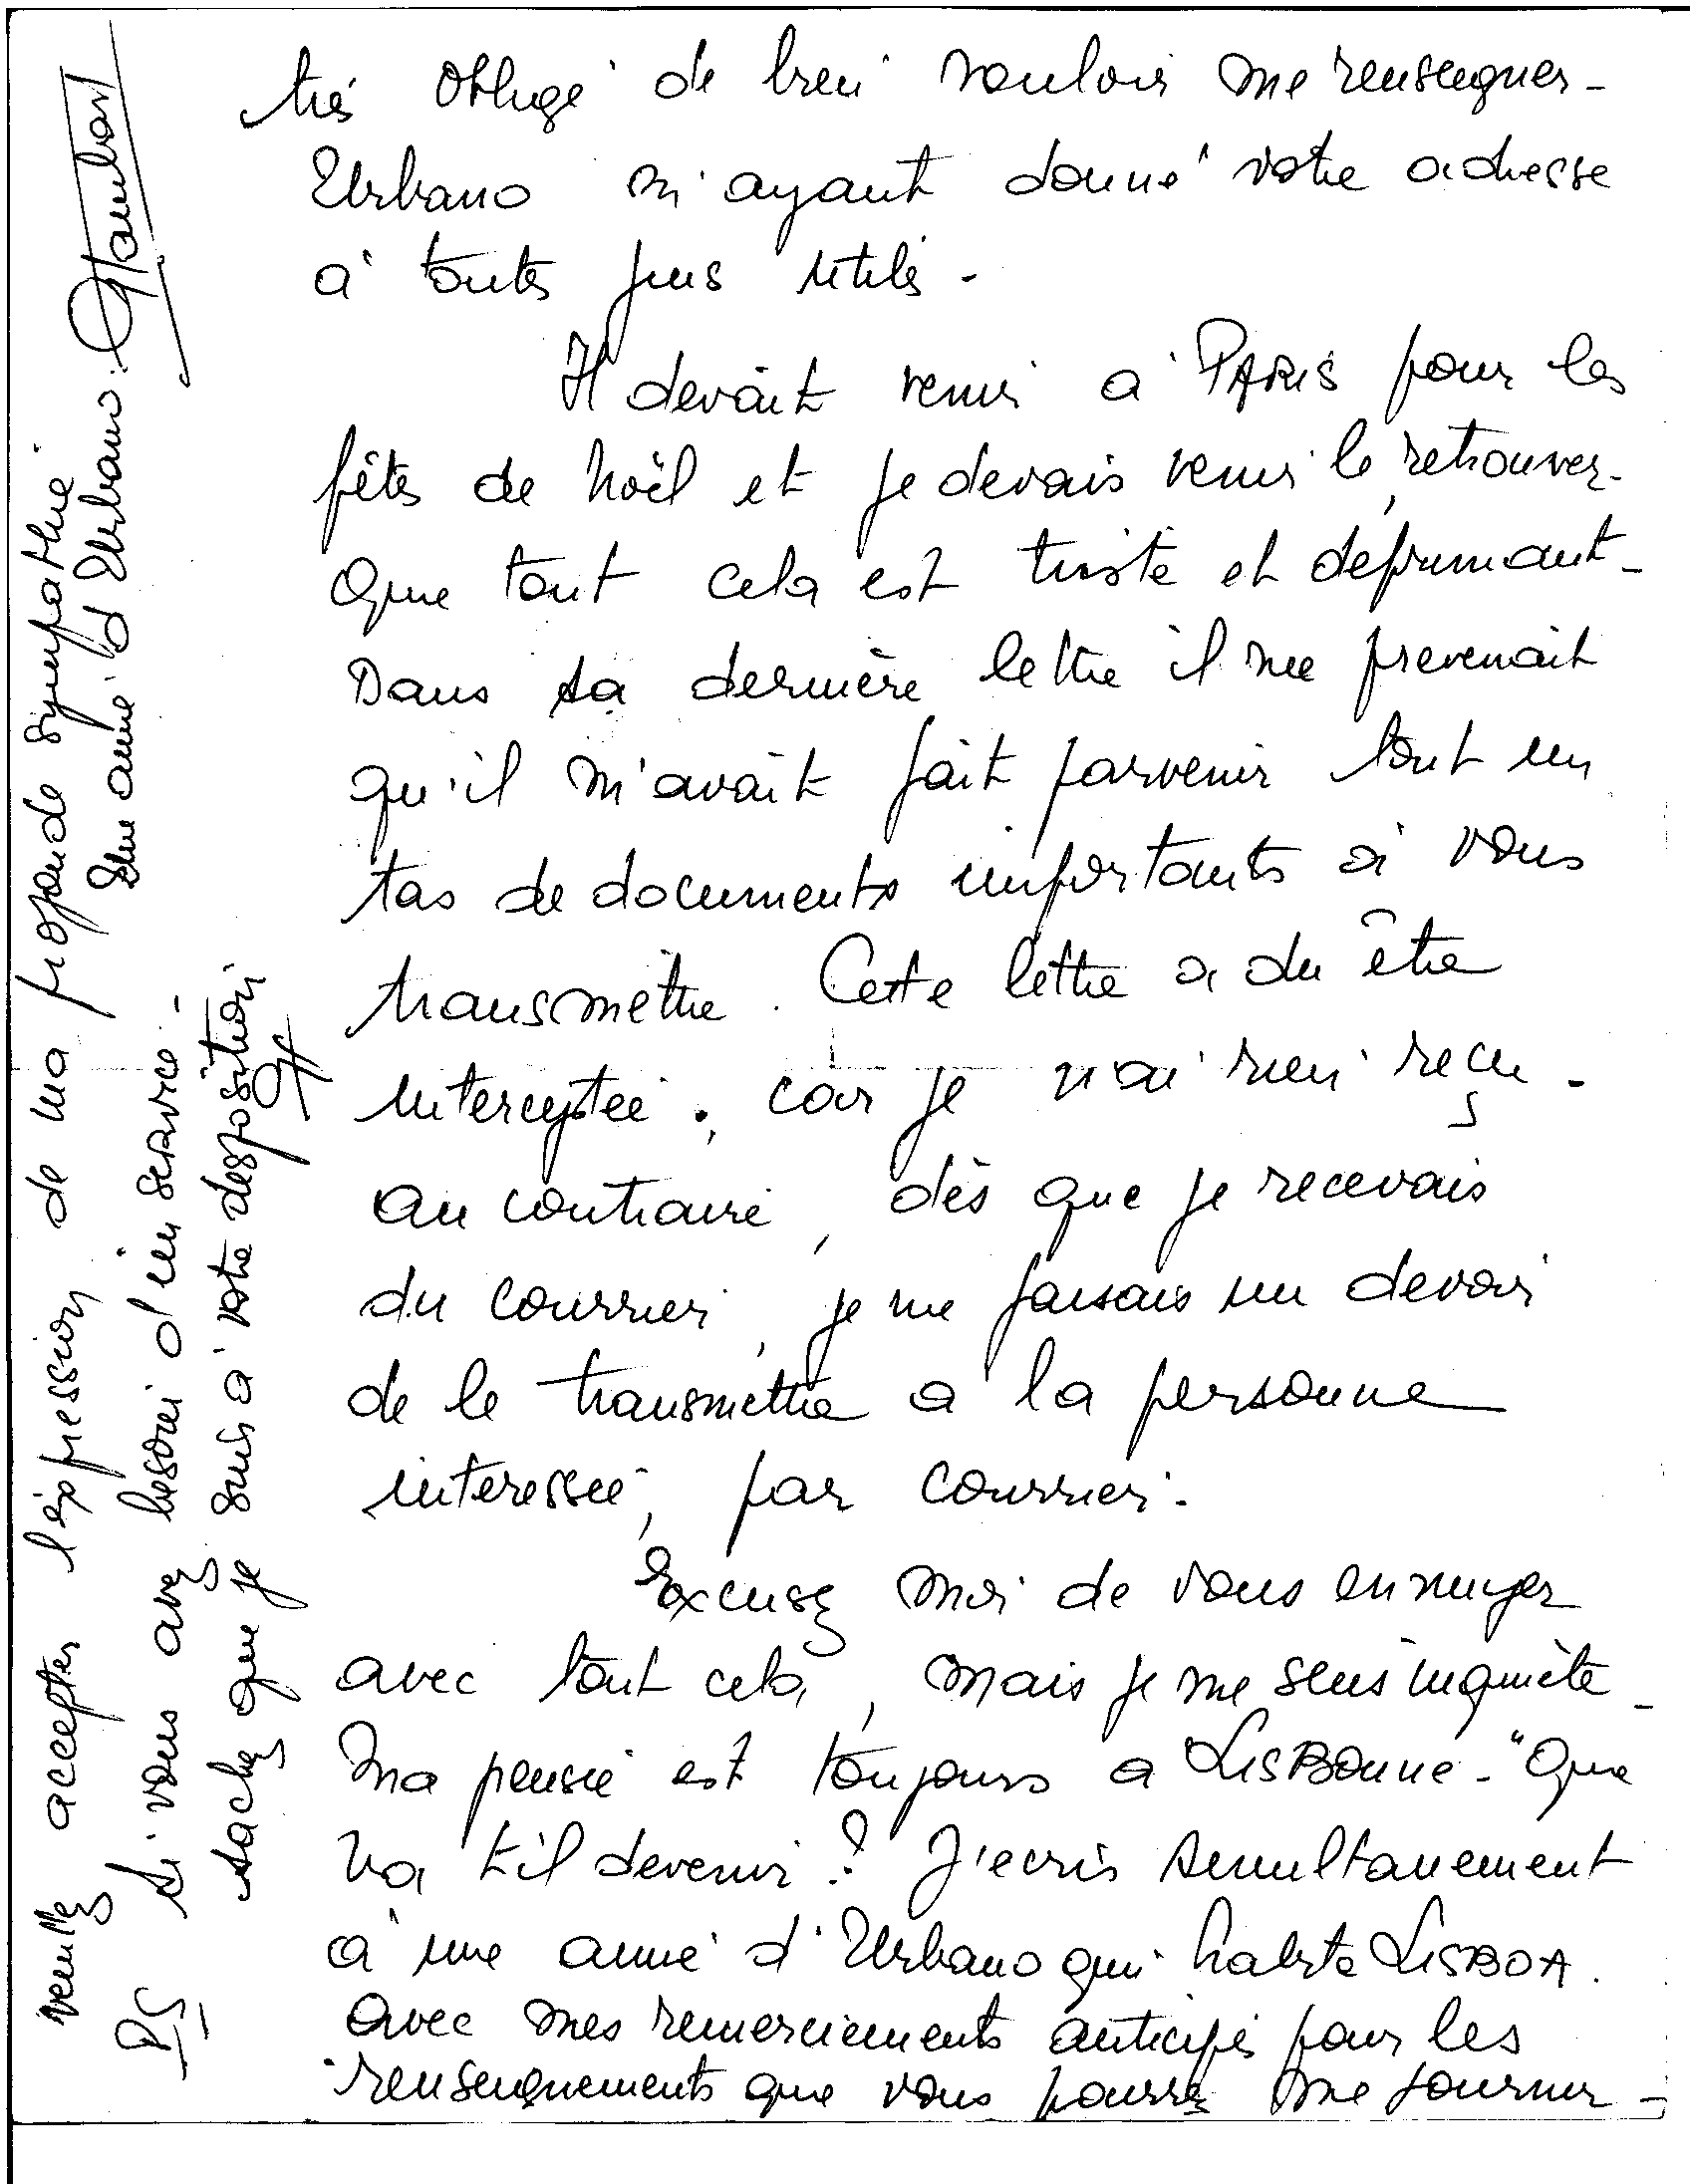 très obligé de bien vouloir me renseigner -
Urbano m'ayant donné votre adresse
à toutes fins utiles -
Il devait venir à PARIS pour les
fêtes de Noël et je devais venir le retrouver -
Que tout cela est triste et déprimant -
Dans sa dernière lettre il me prevenait
qu'il m'avait fait parvenir tout un
tas de documents importants à vous
transmettre. Cette lettre a du être
interceptée, car je n'ai rien reçu -
au contraire, dès que je recevais
du courrier, je me faisais un devoir
de le transmettre a la personne
interessée, par courrier.
Excusez moi de vous ennuyer
avec tout cela, mais je me sens inquiète -
Ma pensée est toujours a LISBonne - "Que
va t'il devenir? J'ecris simultanement
à une amie d'Urbano qui habite LISBOA.
avec mes remerciements anticipés pour les
renseignements que vous pourrez me fournir -
veuillez accepter l'expression de ma profonde sympathie
Une amie d'Urbano.
PS Si vous avez besoin d'un service -
sachez que je suis à votre disposition